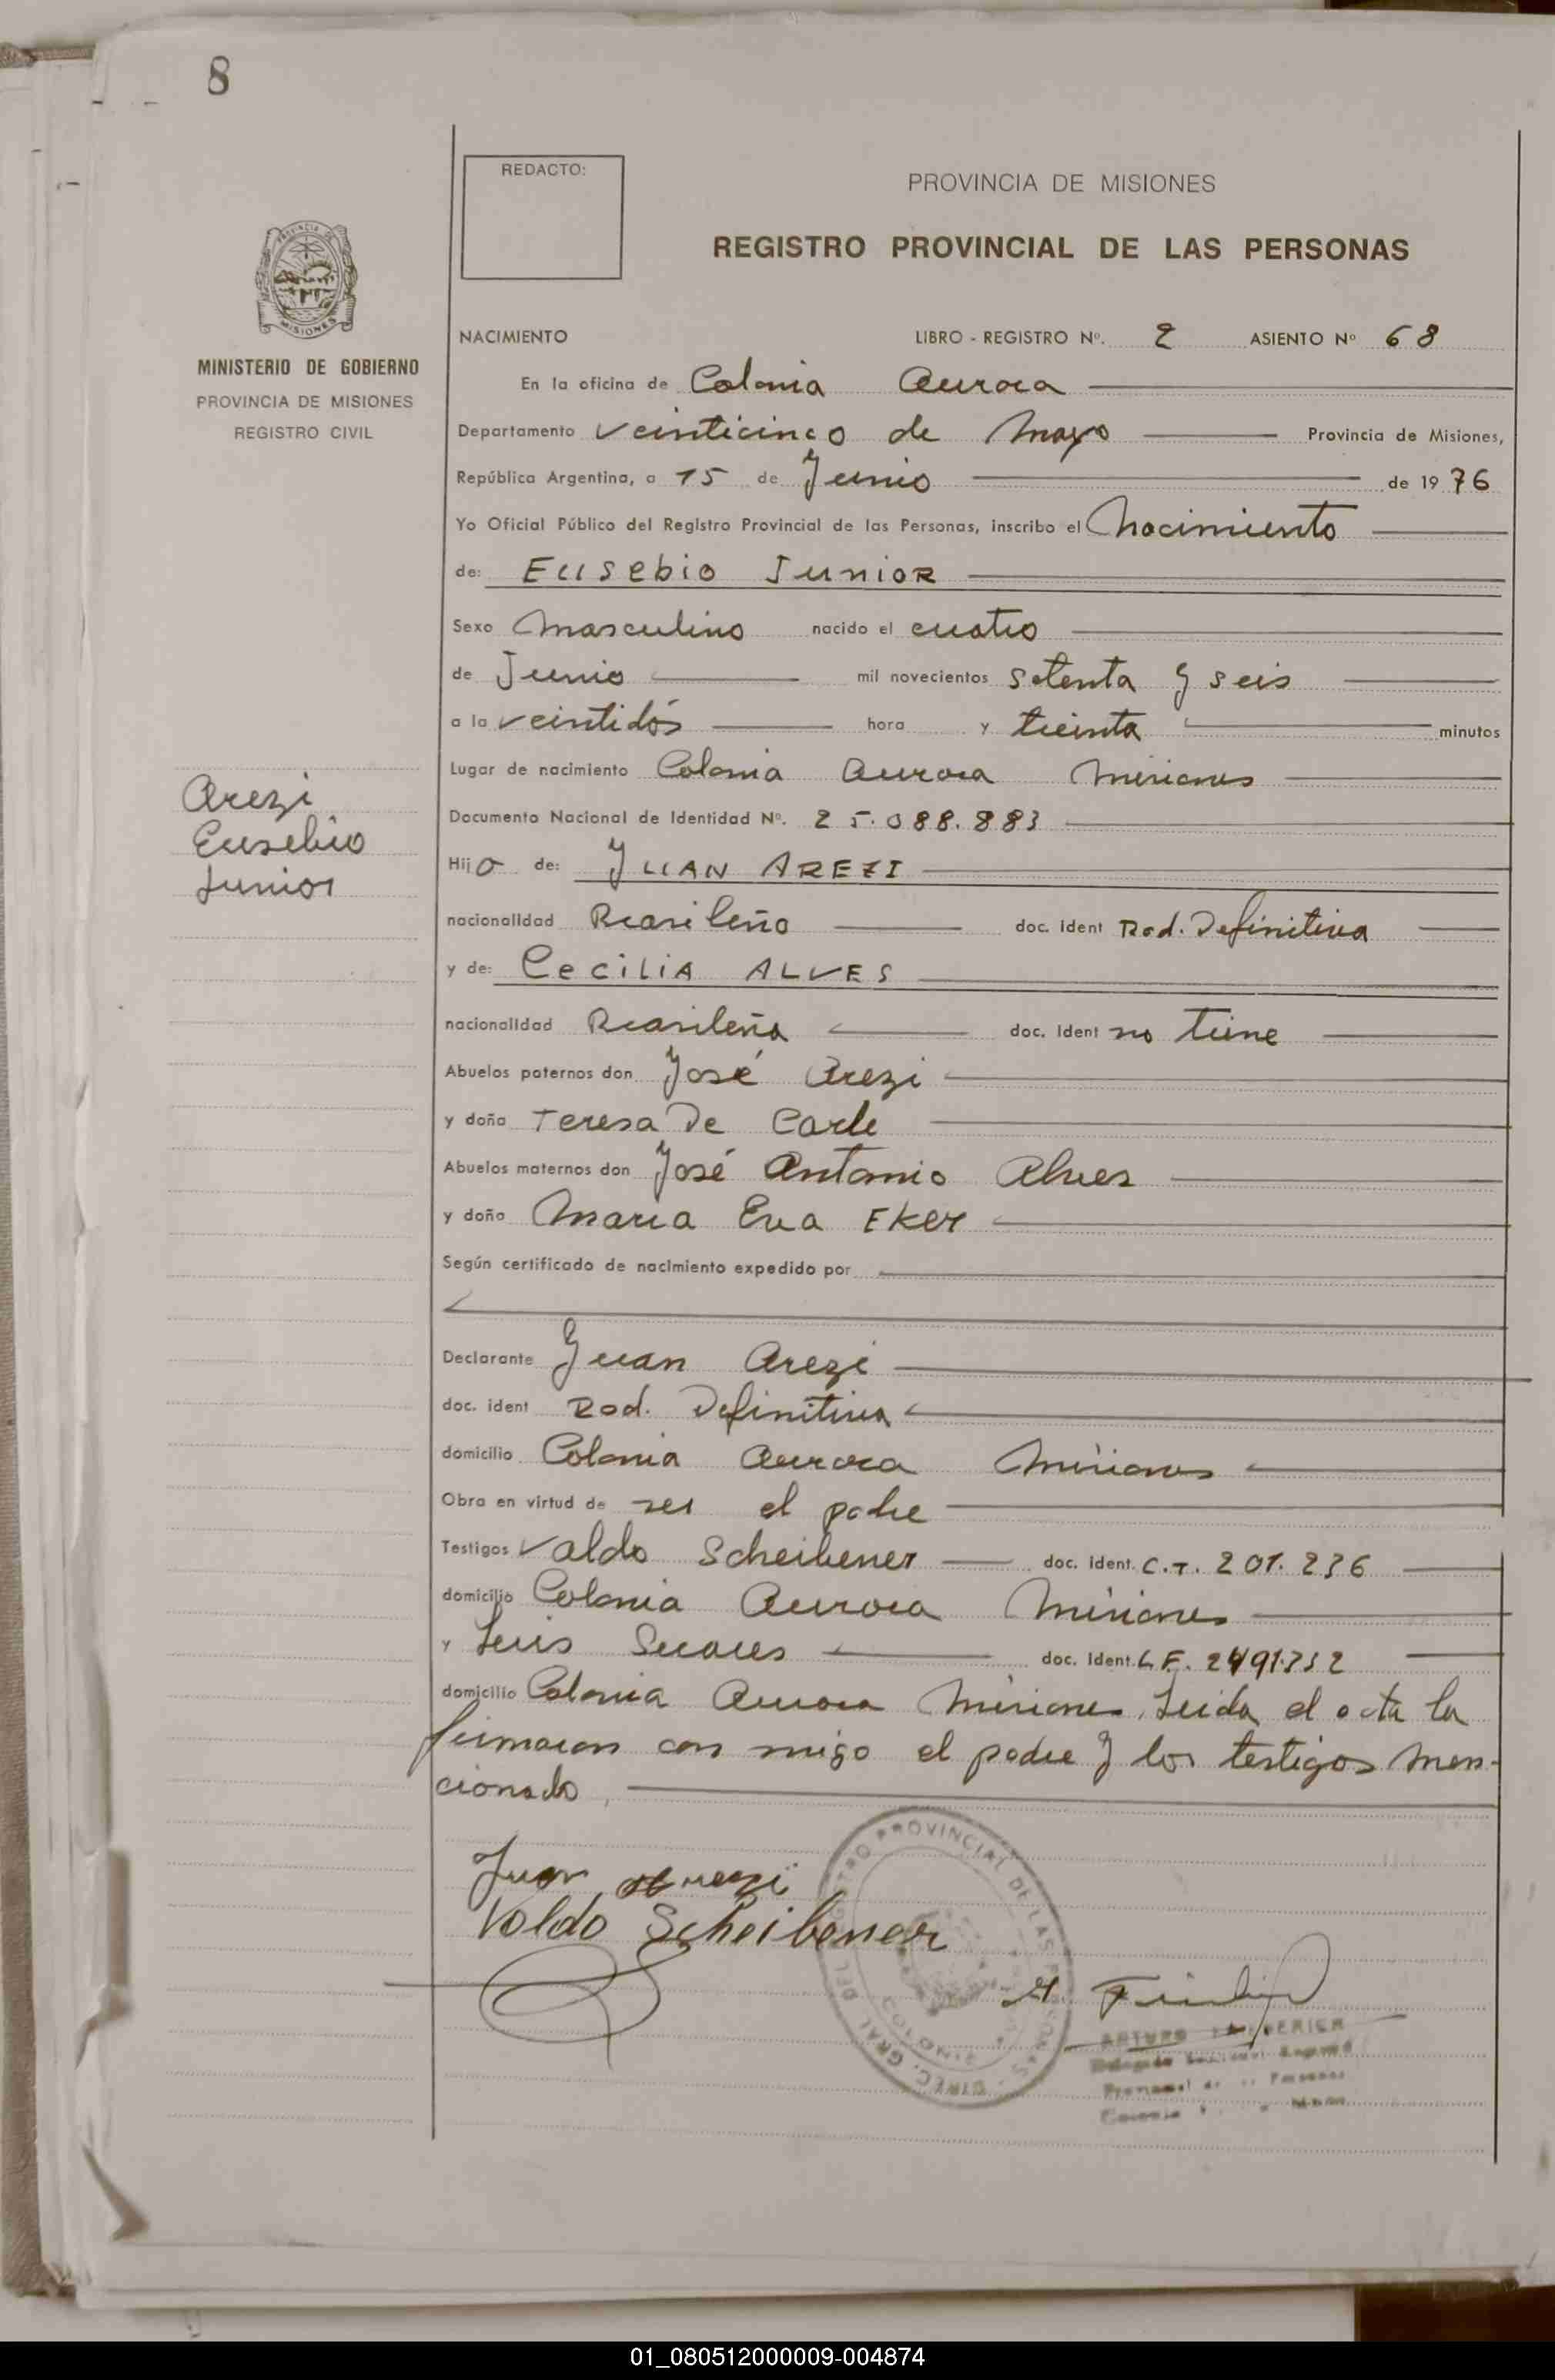 8
REDACTO:
PROVINCIA DE MISIONES
REGISTRO PROVINCIAL DE LAS PERSONAS
PROVINCIA DE
MISIONES
MINISTERIO DE GOBIERNO
PROVINCIA DE MISIONES
REGISTRO CIVIL
NACIMIENTO LIBRO - REGISTRO Nº. 2 ASIENTO Nº 68
En la oficina de Colonia Aurora
Departamento Veinticinco de Mayo Provincia de Misiones,
República Argentina, a 15 de Junio de 1976
Yo Oficial Público del Registro Provincial de las Personas, inscribo el Nacimiento
de: Eusebio Junior
Sexo Masculino nacido el cuatro
de Junio mil novecientos setenta y seis
a la veintidós hora y treinta minutos
Lugar de nacimiento Colonia Aurora Misiones
Documento Nacional de Identidad Nº. 25.088.883
Arezi
Eusebio
Junior
Hijo de: JUAN AREZI
nacionalidad Brasileño doc. ident Rad. Definitiva
y de: Cecilia ALVES
nacionalidad Brasileña doc. ident no tiene
Abuelos paternos don José Arezi
y doña Teresa De Carle
Abuelos maternos don José Antonio Alves
y doña Maria Eva Eker
Según certificado de nacimiento expedido por
Declarante Juan Arezi
doc. ident Rad. Definitiva
domicilio Colonia Aurora Misiones
Obra en virtud de ser el padre
Testigos Valdo Scheibener doc. ident. C.T. 201.236
domicilio Colonia Aurora Misiones
y Luis doc. ident. L.E. 2491.732
domicilio Colonia Aurora Misiones. Leida el acta la
firmaron con migo el padre y los testigos men-
cionado,
Juan Arezi
Valdo Scheibener
DIREC. GRAL DEL REGISTRO PROVINCIAL DE LAS PERSONAS
ARTURO
01_080512000009-004874